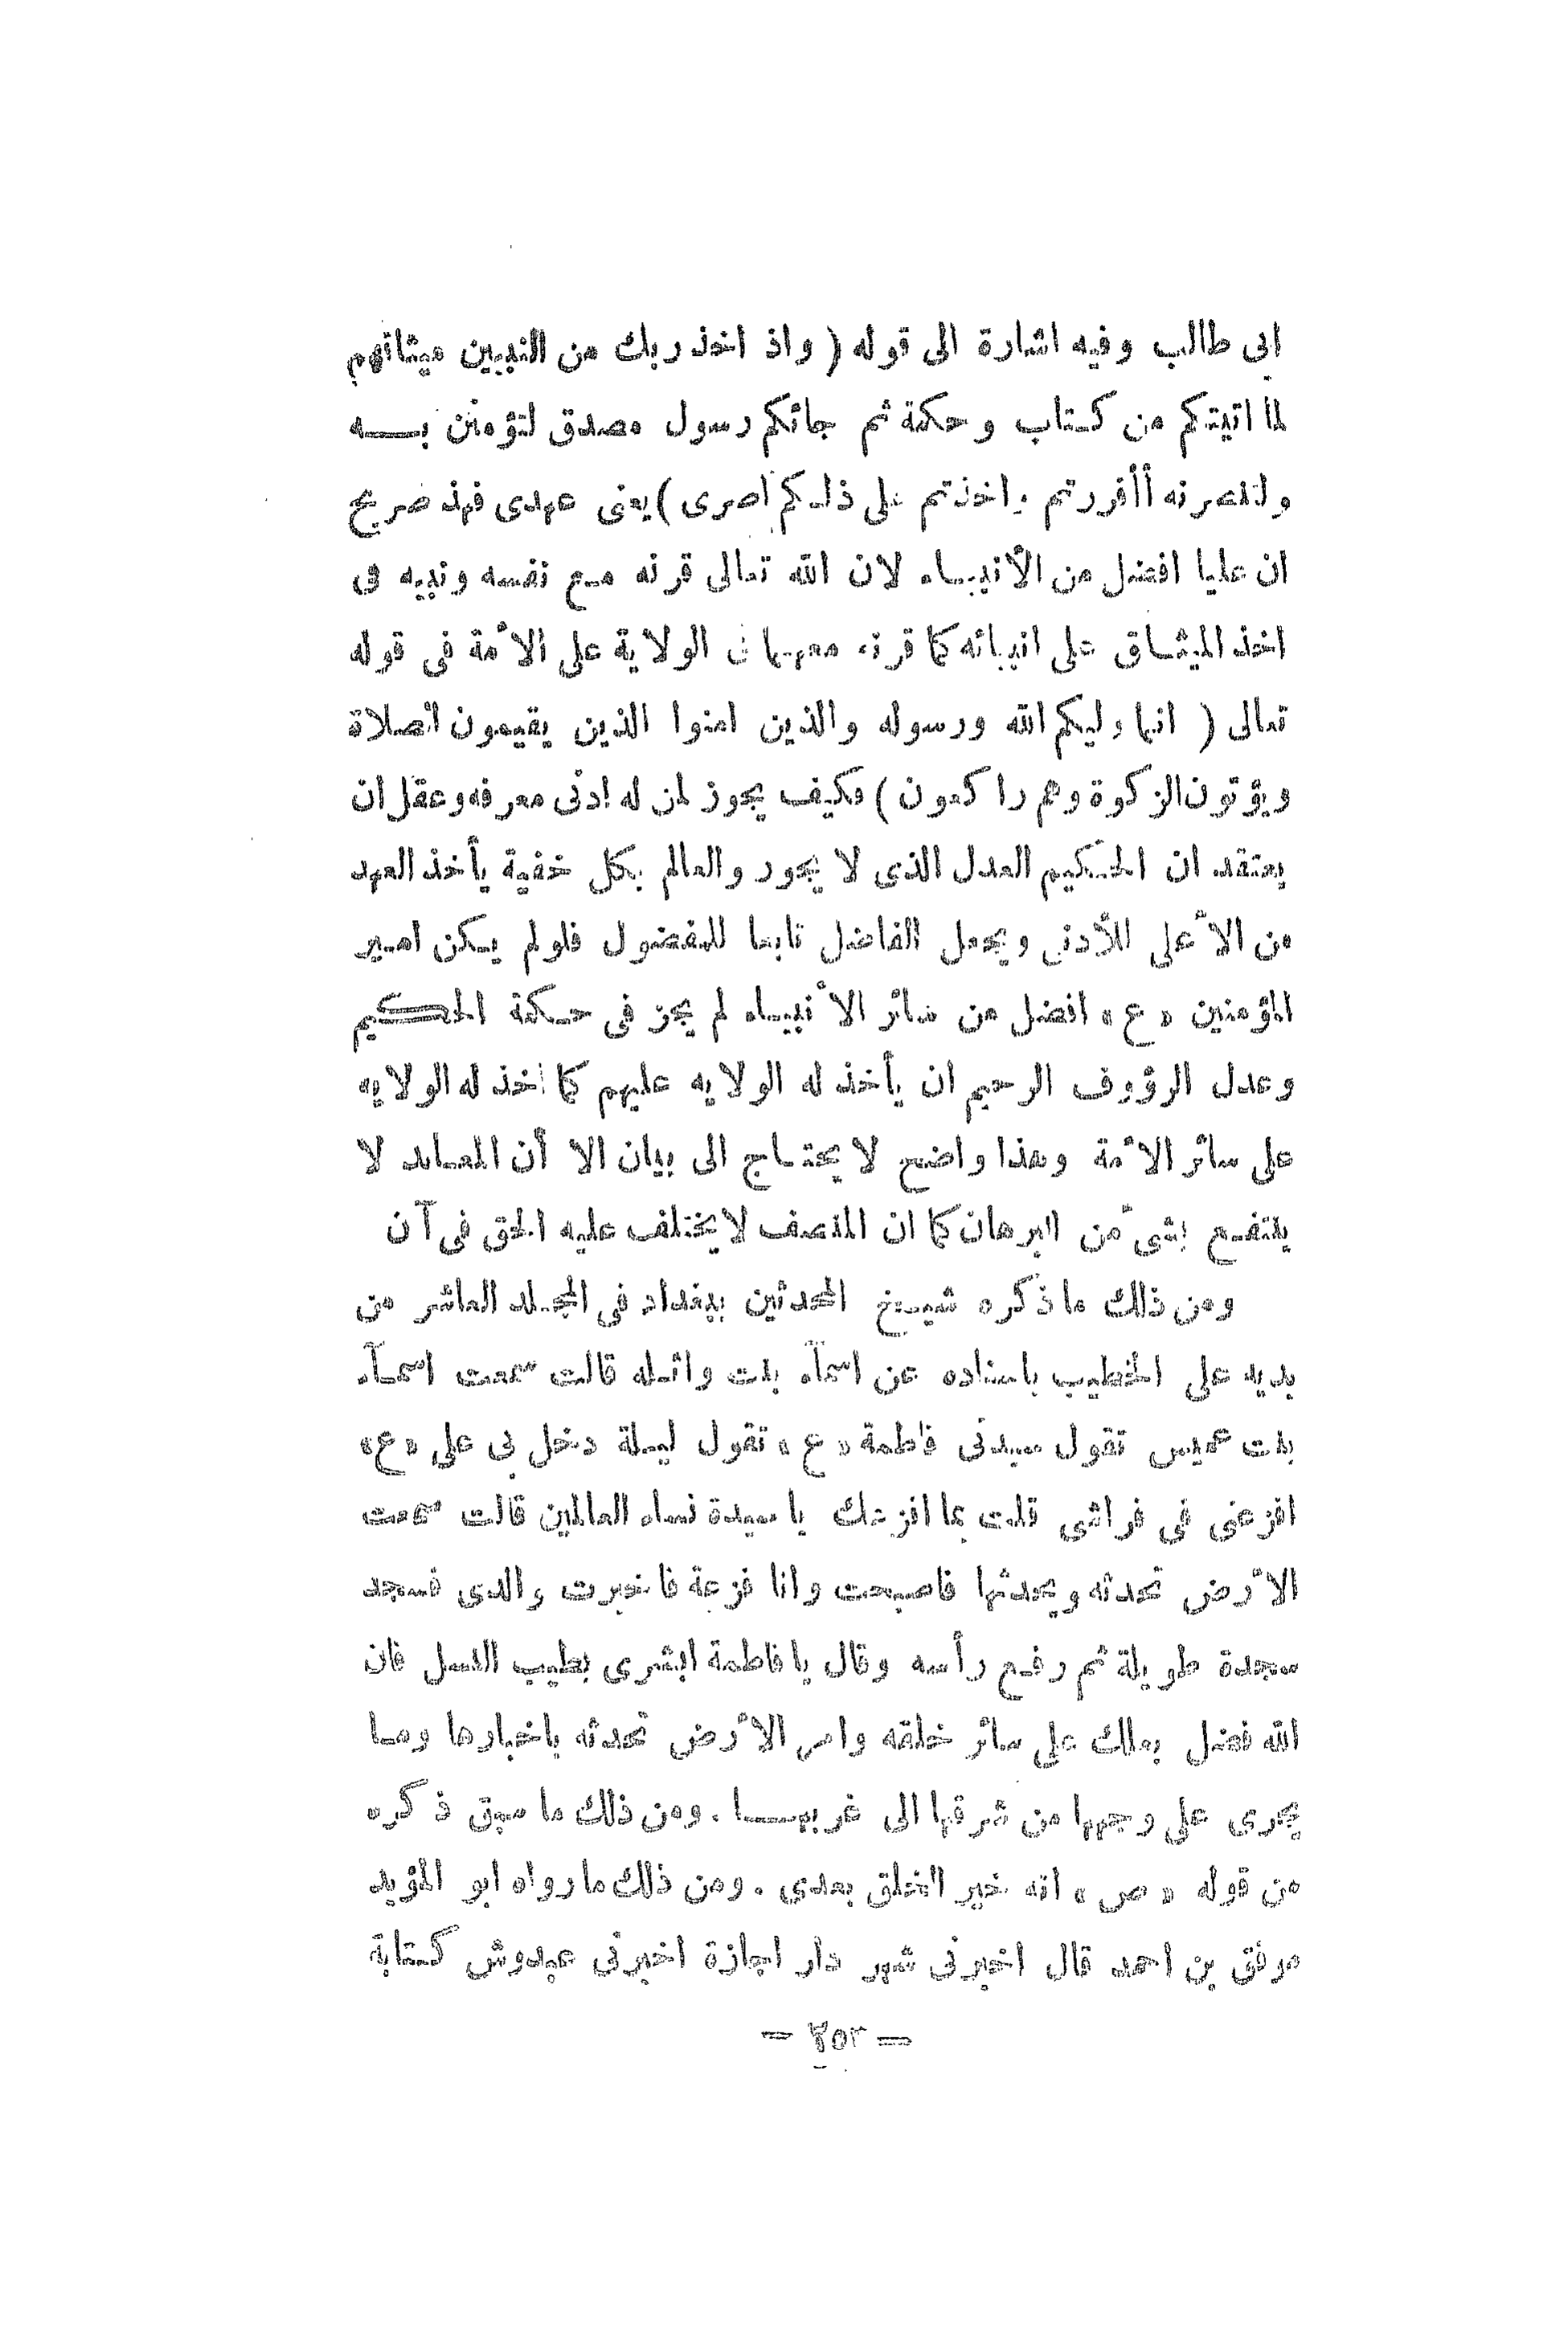 ابى طالب وفيه اشارة الى قوله ( واذ اخذ ربك من النبيين ميثاقهم
لما اتيتكم من كتاب وحكمة ثم جائكم رسول مصدق لتؤمنن بـــه
ولتنصرنه أأقررتم واخذتم على ذلـكم اصرى ) يعنى عهدى فهذ صريح
ان عليا افضل من الأنبيـاء لان الله تعالى قرنه مـع نفسه ونبيه فى
اخذ الميثـاق على انبيائه كما قرنه معهـما فى الولاية على الأمة فى قوله
تعالى ( انما وليكم الله ورسوله والذين امنوا الذين يقيمون الصلاة
ويؤتون الزكوة وهم راكعون ) فكيف يجوز لمن له ادنى معرفه وعقل ان
يعتقد ان الحـكيم العدل الذى لا يجور والعالم بكل خفية يأخذ العهد
من الأعلى للأدنى ويجعل الفاضل تابعا للمفضول فلو لم يـكن امـير
المؤمنين « ع » افضل من سائر الأنبيـاء لم يجز فى حـكمة الحـكيم
وعدل الرؤوف الرحيم ان يأخذ له الولايه عليهم كما اخذ له الولايه
على سائر الأمة وهذا واضح لا يحتـاج الى بيان الا أن المعـاند لا
ينتفـع بشئ من البرهان كما ان المنصف لا يختلف عليه الحق فى آن
ومن ذلك ما ذكره شيـخ المحدثين ببغداد فى المجـلد العاشر من
بديه على الخطيب باسناده عن اسمآء بنت واثـله قالت سمعت اسمـآء
بنت عميس تقول سيدتى فاطمة « ع » تقول ليـلة دخل بى على « ع »
افزعنى فى فراشى قلت بما افزعك يا سيدة نساء العالمين قالت سمعت
الأرض تحدثه ويحدثها فاصبحت وانا فزعة فاخبرت والدى فسجد
سجدة طويلة ثم رفـع رأسه وقال يا فاطمة ابشرى بطيب النسل فان
الله فضل بعلك على سائر خلقه وامر الأرض تحدثه باخبارها ومـا
يجرى على وجهها من شرقها الى غربهـــا . ومن ذلك ما سبق ذكره
من قوله « ص » انه خير الخلق بعدى . ومن ذلك ما رواه ابو المؤيد
موفق بن احمد قال اخبرنى شهر دار اجازة اخبرنى عبدوش كـتابة
— ٢٥٢ —